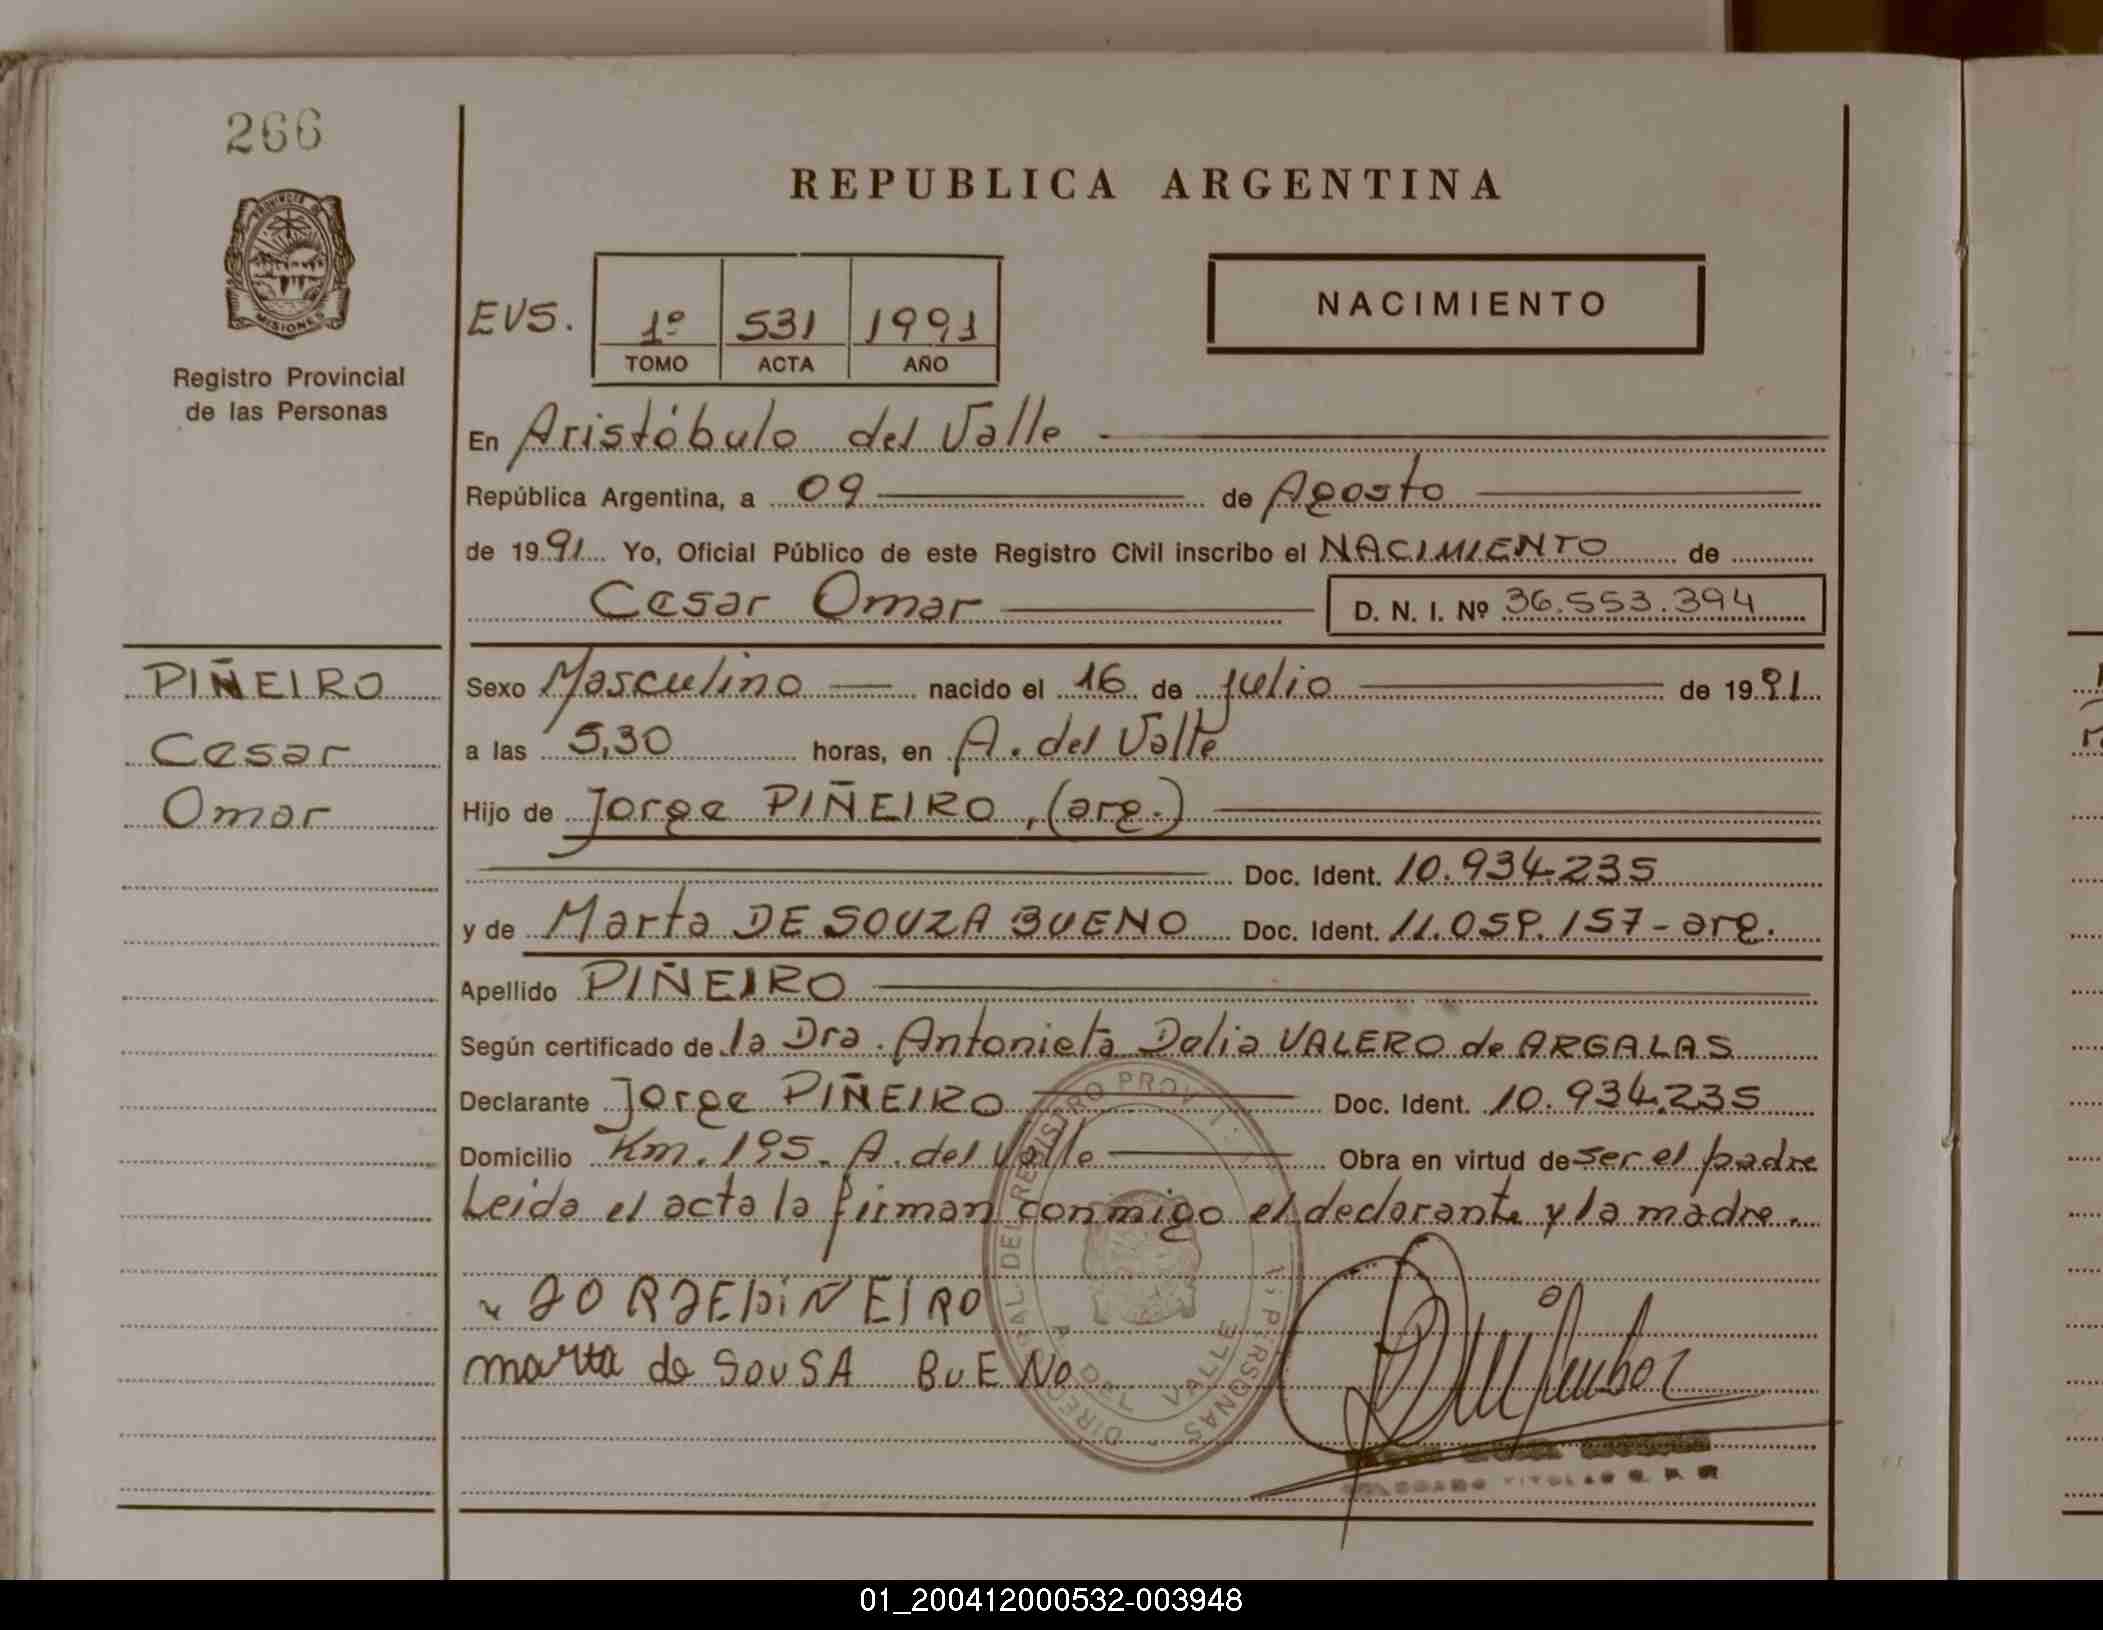 266
PROVINCIA DE
MISIONES
Registro Provincial
de las Personas
REPUBLICA ARGENTINA
NACIMIENTO
EVS.
1º 531 1991
TOMO ACTA AÑO
En Aristóbulo del Valle
República Argentina, a 09 de Agosto
de 1991 Yo, Oficial Público de este Registro Civil inscribo el NACIMIENTO de
Cesar Omar D. N. I. Nº 36.553.394
PIÑEIRO
Cesar
Omar
Sexo Masculino nacido el 16 de julio de 1991
a las 5,30 horas, en A. del Valle
Hijo de Jorge PIÑEIRO, (arg.)
Doc. Ident. 10.934.235
y de Marta DE SOUZA BUENO Doc. Ident. 11.059.157 - arg.
Apellido PIÑEIRO
Según certificado de la Dra. Antonieta Delia VALERO de ARGALAS
Declarante Jorge PIÑEIRO Doc. Ident. 10.934.235
Domicilio Km. 195. A. del Valle Obra en virtud de ser el padre
Leida el acta la firman conmigo el declarante y la madre.
JORJEPiÑEIRO
marta de SOUSA BUENO
01_200412000532-003948